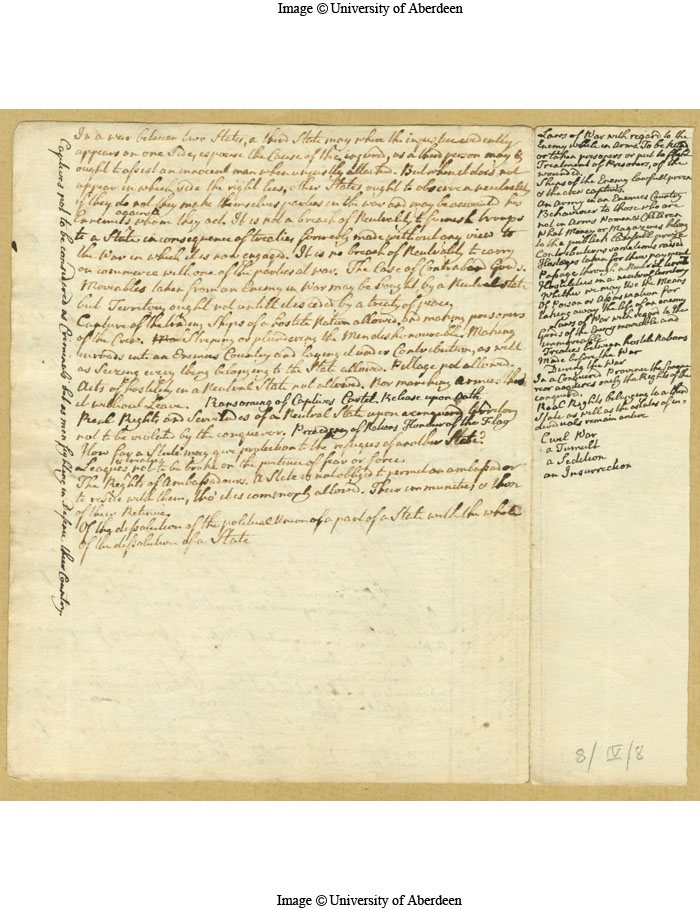 Image © University of Aberdeen
In a war between two States, a third State may when the injustice evidently
appears on one Side, espouse the Cause of the injured, as a third person may &
ought to assist an innocent man when unjustly attacked. But when it does not
appear in which Side the right lies, other States ought to observe a neutrality
if they do not they make themselves parties in the war and may be accounted
Enemies against whom they act. It is not a breach of Neutrality to furnish troops
to a State in consequence of treaties formerly made without any view to
the War in which it is now engaged. It is no breach of Neutrality to carry
on commerce with one of the parties at war. The Case of Contraban Goods.
Moveables taken from an Enemy in War may be bought by a Neutral State
but Territory ought not untill it is ceded by a treaty of peace.
Capture of the trading Ships of a hostile Nation allowed, and making prisoners
of the Crew. Striping or plundering the Men dishonourable. Making
inroads into an Enemies Country and laying it under Contribution, as well
as Seizing every thing belonging to the State allowed. Pillage not allowed.
Acts of hostility in a Neutral State not allowed. Nor marching armies thro
it without Leave. Ransoming of Captives Cartel Release upon Oath
Real Rights and Servitudes of a Neutral State upon a conquerd territory
not to be violated by the conqueror. Precedency of Nations Honour of the Flag
How far a State may give protection to the refugees of another State?
Leagues or treatys not to be broke on the pretence of fear or force.
The Right of Ambassadours. A State is not obliged to permit an ambassador
to reside with them, tho' it is commonly allowed. Their immunities & those
of their Retinue.
Of the dissolution of the political Union of a part of a State with the whole
of the dissolution of a State
Captives not to be considered as Criminals but as men fighting in defence their Country.
Laws of War with regard to the
Enemy while in Arms. To be killd
or taken prisoners or put to flight
Treatment of Prisoners, of the
wounded.
Ships of the Enemy lawfull prize
to the captors.
An Army in an Enemies Country
Behaviour to those who are
not in Arms Women & Children
What Money or Magazines belong
to the publick lawfull prize
Contributions sometimes raised
Hostages taken for their payment
Passage through a Neutral territory
Hostilities in a neutral territory
Whether we may Use the Means
of Poison or Assassination for
taking away the life of an enemy
Laws of War with regard to the
Goods of the Enemy moveable and
immoveable
Treaties between hostile Nations
Made before the War
During the War
In a Conquerd Province the Conque
ror acquires onely the Rights of the
conquerd.
Real Rights belonging to a third
State as well as the estates of in=
dividuals remain entire
Civil War
a Tumult
a Sedition
an Insurrection
8/IV/8
Image © University of Aberdeen